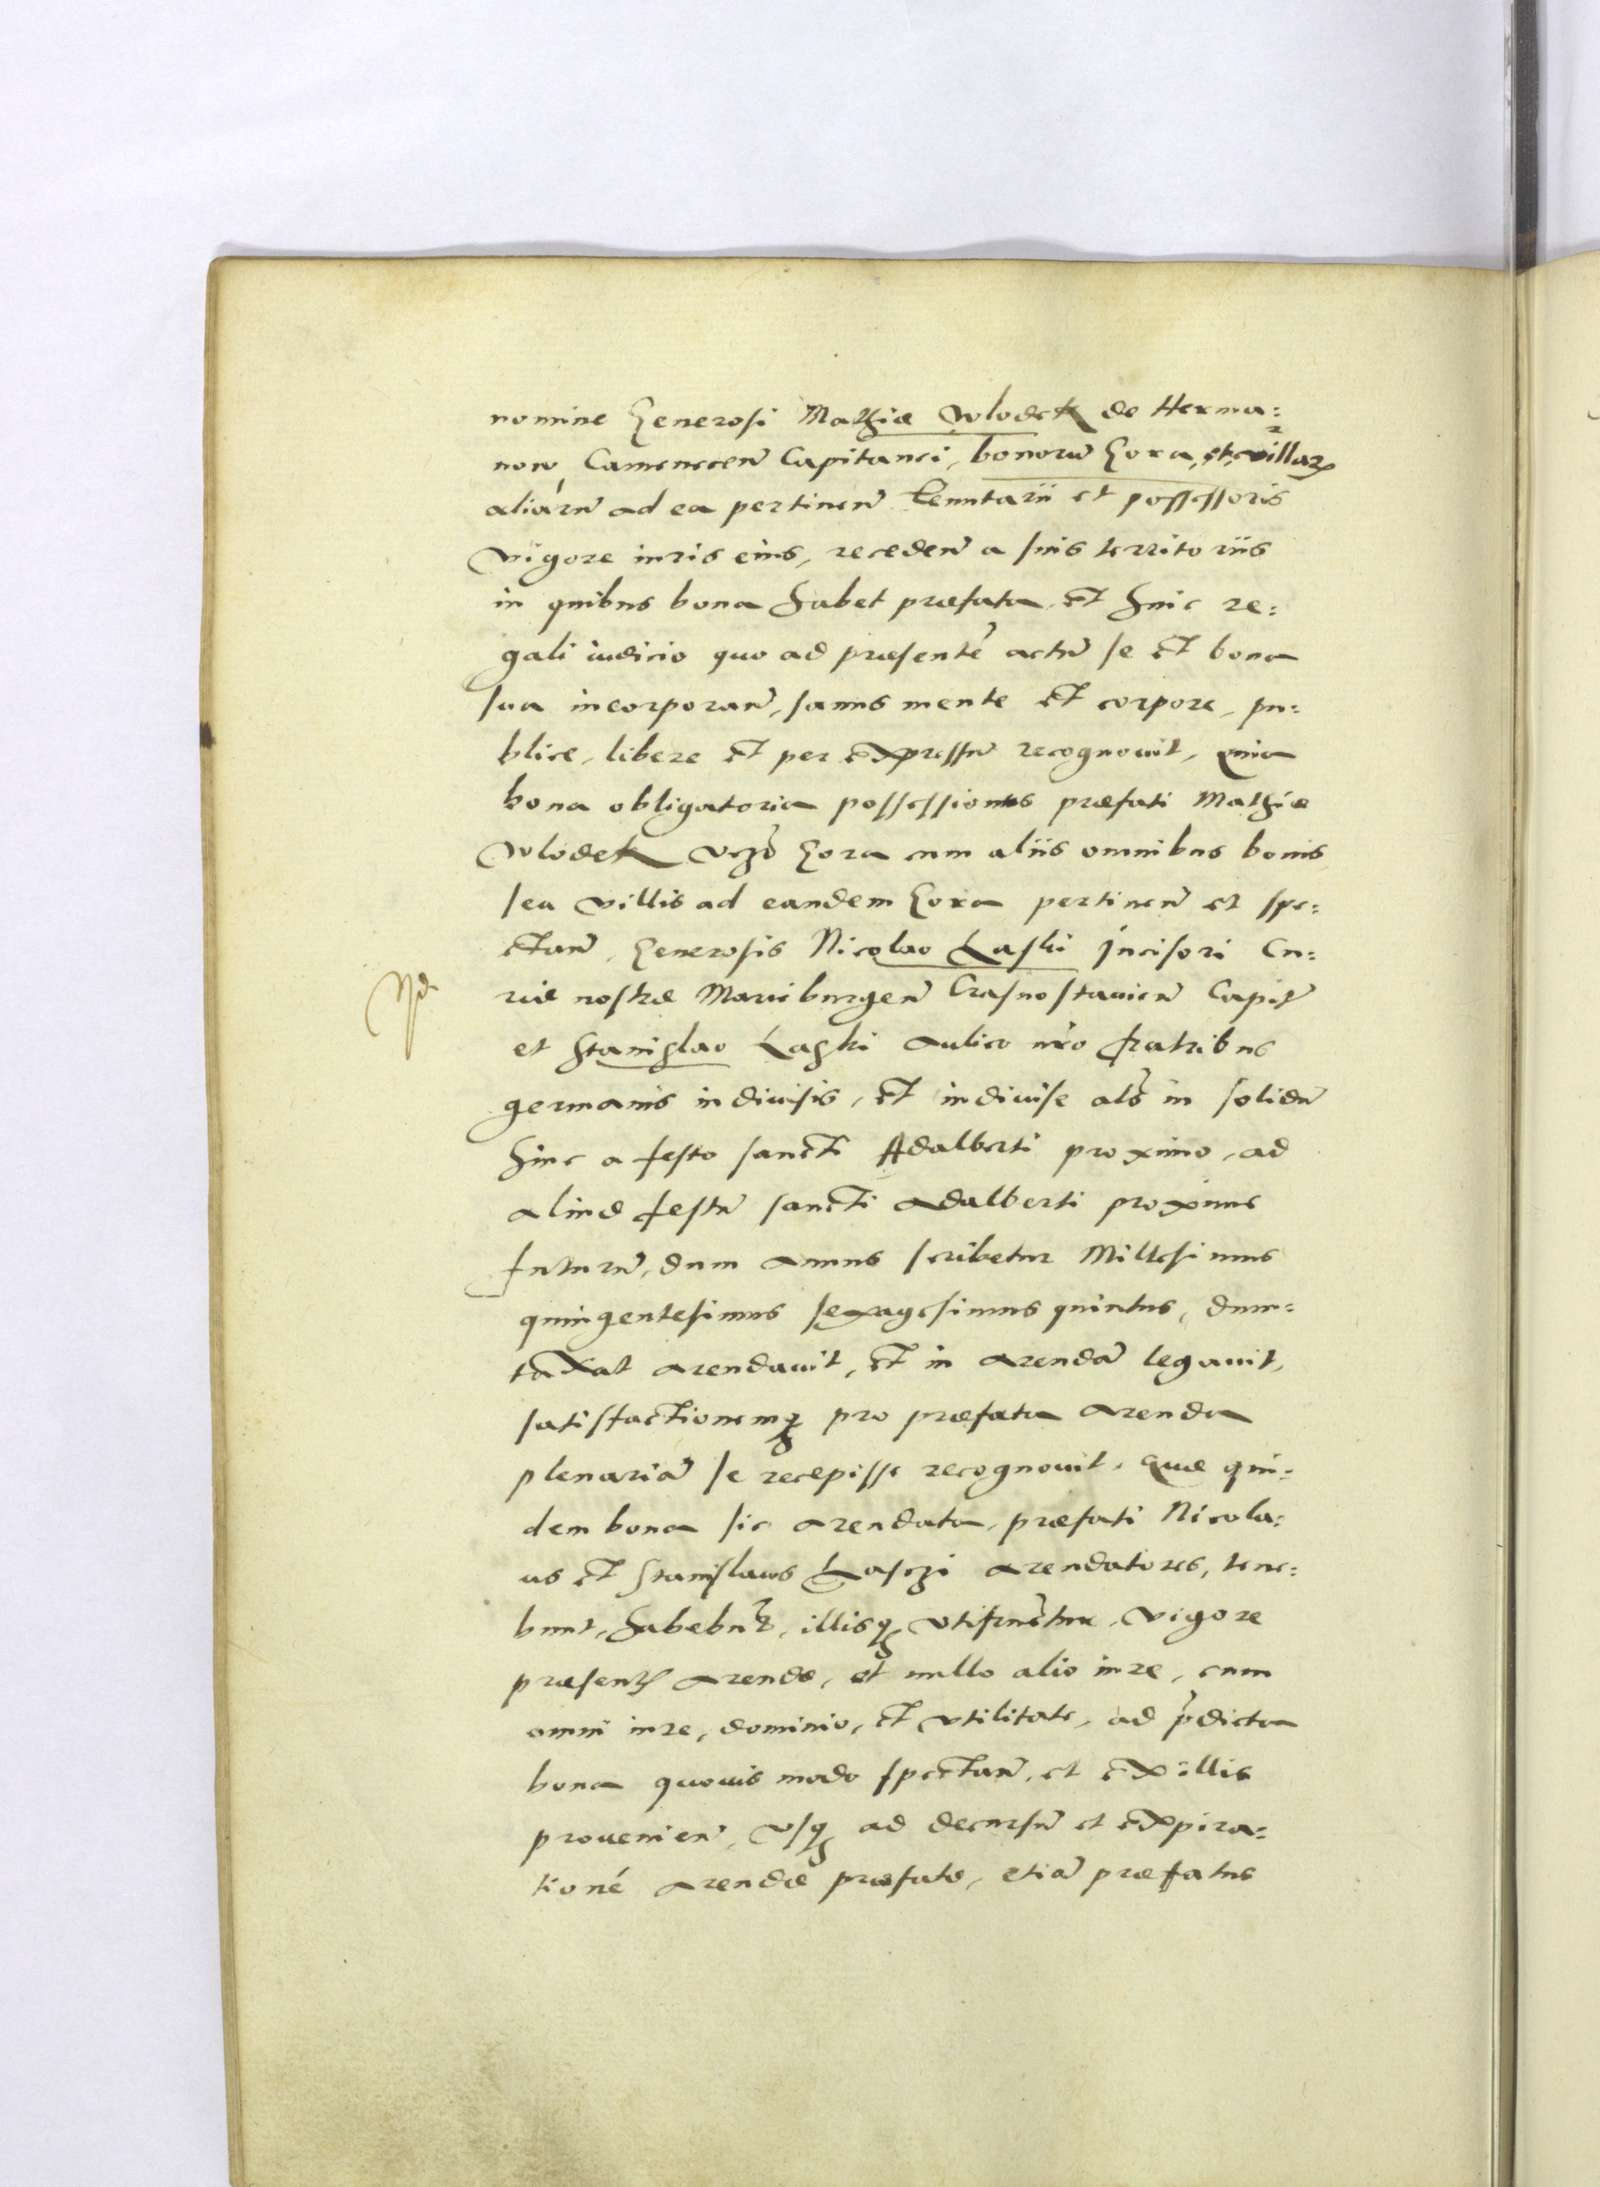 nomine Generosi Mathiæ Wlodek de Herma:
now, Camenecen̄ Capitanei, bonorū Gora, et villaꝝ
aliarū ad ea pertinen̄ tenutarii et possessoris
vigore iuris eius, receden̄ a suis territoriis
in quibus bona habet præfata, et huic re:
gali iudicio quo ad præsentē actū se et bona
sua incorporan̄, sanus mente et corpore, pu:
blice, libere et per expressū recognouit, quia
bona obligatoria possessionis præfati Mathiæ
Wlodek vczō Gora cum aliis omnibus bonis
seu villis ad eandem Gora pertinen̄ et spe:
ctan̄, Generosis Nicolao Laski Incisori Cu:
riæ nostræ Marieburgen̄ Crasnostauien̄ Capit̄
et Stanislao Laski Aulico nr̄o fratribus
germanis indiuisis, et indiuise al̄s in solidū
hinc a festo sancti Adalberti proximo, ad
aliud festū sancti Adalberti proxime
futurū, dum annus scribetur Millesimus
quingentesimus sexagesimus quintus, dun:
taxat arendauit, et in arendā legauit,
satisfactionemqꝫ pro præfata arenda
plenariā se recepisse recognouit. Quæ qui:
dem bona sic arendata, præfati Nicola:
us et Stanislaus Lasczi arendatores, tene:
bunt, habebūt, illisqꝫ vtifruētur, vigore
præsentꝭ arendæ, et nullo alio iure, cum
omni iure, dominio, et vtilitate, ad p̄dicta
bona quouis modo spectan̄, et ex illis
prouenien̄, vsqꝫ ad decursū et expira:
tioné arendæ præfatæ, etiā præfatus